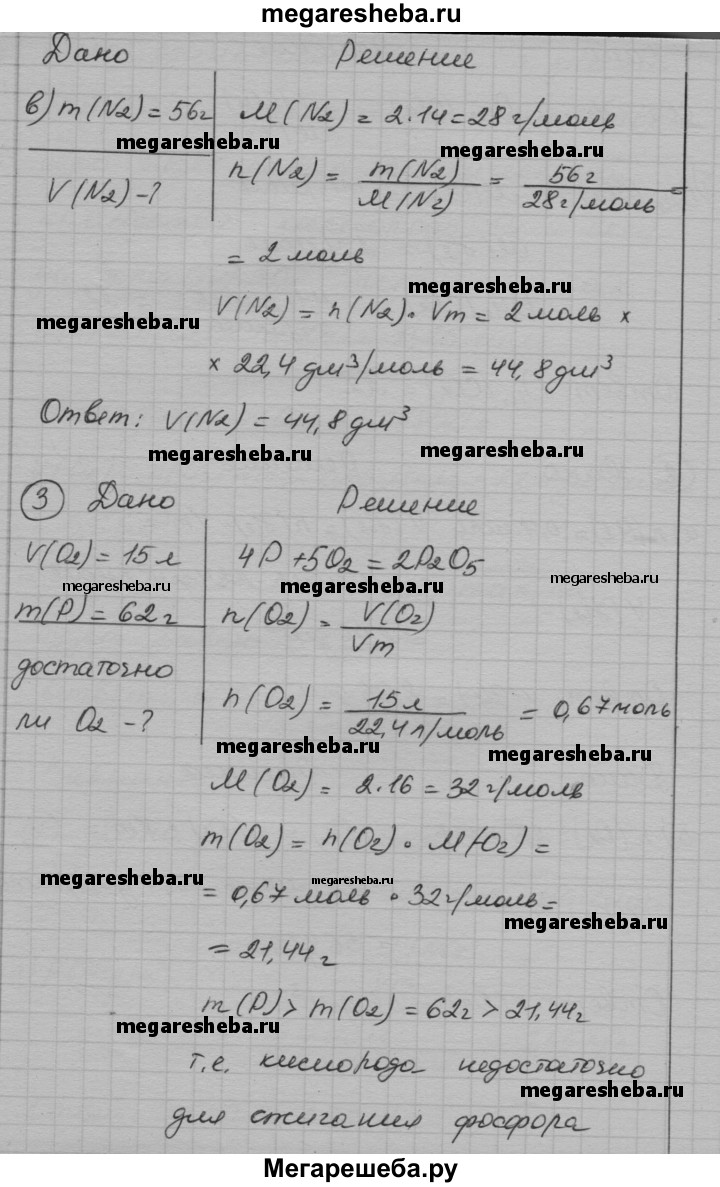 megaresheba.ru
Дано Решение
в) m(N2) = 56г M(N2) = 2·14 = 28 г/моль
megaresheba.ru megaresheba.ru
V(N2) - ? n(N2) = m(N2)/M(N2) = 56г/28г/моль =
= 2 моль
megaresheba.ru
V(N2) = n(N2)·Vm = 2 моль ×
megaresheba.ru
× 22,4 дм³/моль = 44,8 дм³
Ответ: V(N2) = 44,8 дм³
megaresheba.ru megaresheba.ru
3 Дано Решение
V(O2) = 15 л 4P + 5O2 = 2P2O5
megaresheba.ru megaresheba.ru megaresheba.ru
m(P) = 62 г n(O2) = V(O2)/Vm
достаточно
ли O2 - ? n(O2) = 15 л/22,4 л/моль = 0,67 моль
megaresheba.ru megaresheba.ru
M(O2) = 2·16 = 32 г/моль
m(O2) = n(O2)·M(O2) =
megaresheba.ru megaresheba.ru
= 0,67 моль · 32 г/моль =
megaresheba.ru
= 21,44 г
m(P) > m(O2) = 62 г > 21,44 г
megaresheba.ru
т.е. кислорода недостаточно
megaresheba.ru
для сжигания фосфора
Мегарешеба.ру